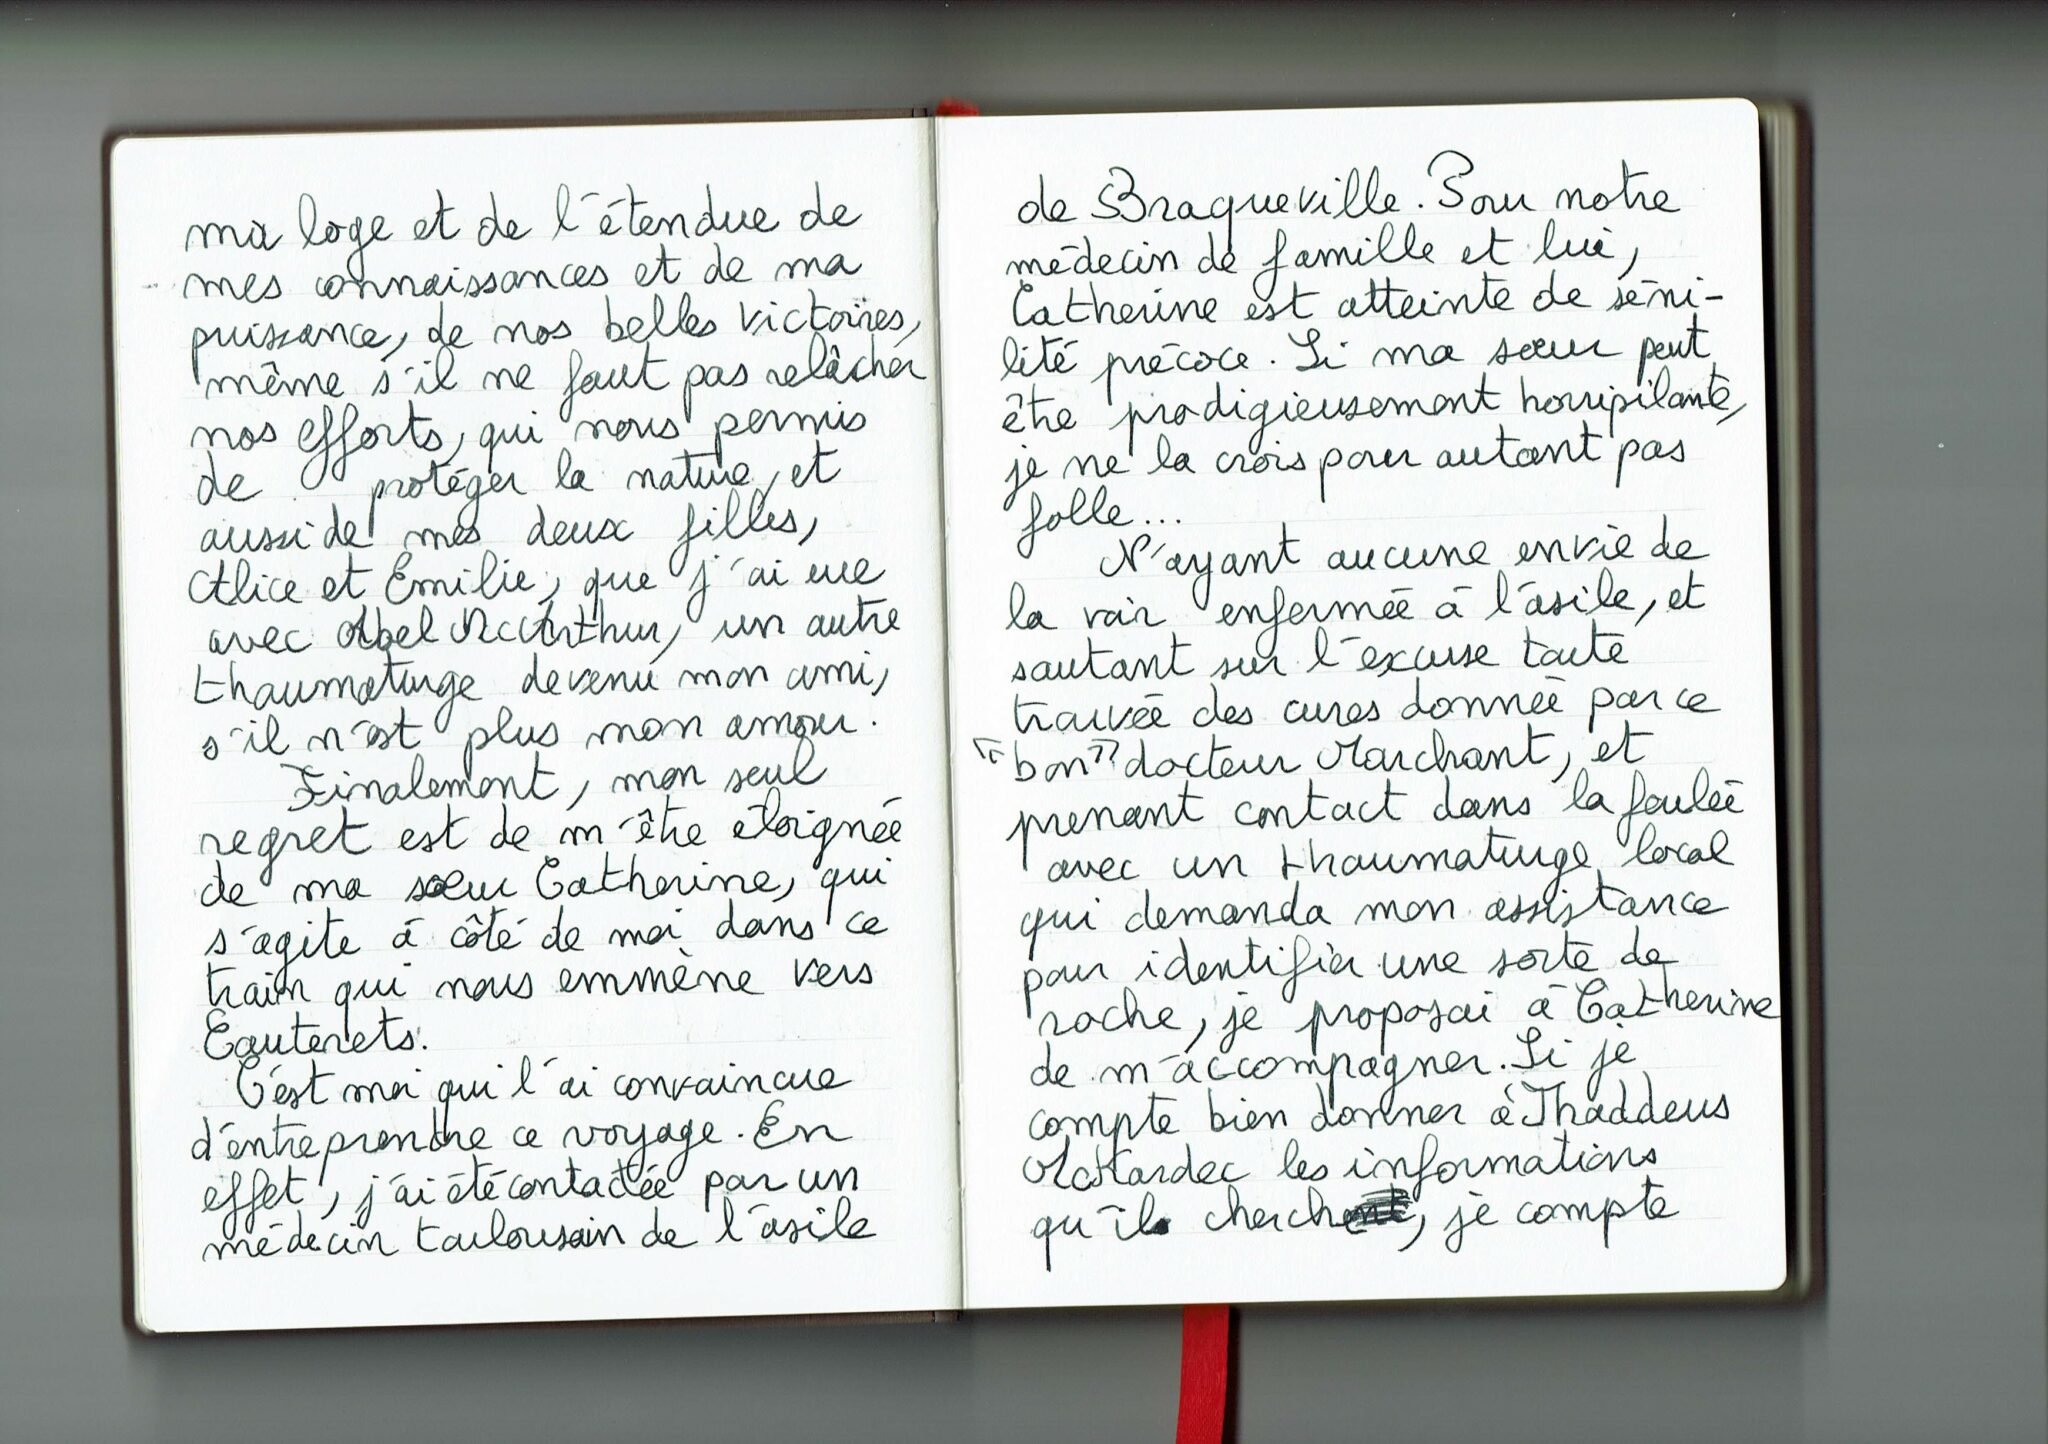 ma loge et de l'étendue de
mes connaissances et de ma
puissance, de nos belles victoires,
même s'il ne faut pas relâcher
nos efforts, qui nous permis
de protéger la nature, et
aussi de mes deux filles,
Alice et Emilie, que j'ai eue
avec Abel McArthur, un autre
thaumaturge devenu mon ami,
s'il n'est plus mon amour.
Finalement, mon seul
regret est de m'être éloignée
de ma sœur Catherine, qui
s'agite à côté de moi dans ce
train qui nous emmène vers
Cauterets.
C'est moi qui l'ai convaincue
d'entreprendre ce voyage. En
effet, j'ai été contactée par un
médecin toulousain de l'asile
de Braqueville. Pour notre
médecin de famille et lui,
Catherine est atteinte de séni-
lité précoce. Si ma sœur peut
être prodigieusement horripilante,
je ne la crois pour autant pas
folle...
N'ayant aucune envie de
la voir enfermée à l'asile, et
sautant sur l'excuse toute
trouvée des cures donnée par ce
"bon" docteur Marchant, et
prenant contact dans la foulée
avec un thaumaturge local
qui demanda mon assistance
pour identifier une sorte de
roche, je proposai à Catherine
de m'accompagner. Si je
compte bien donner à Thaddeus
McKardec les informations
qu'il cherche, je compte